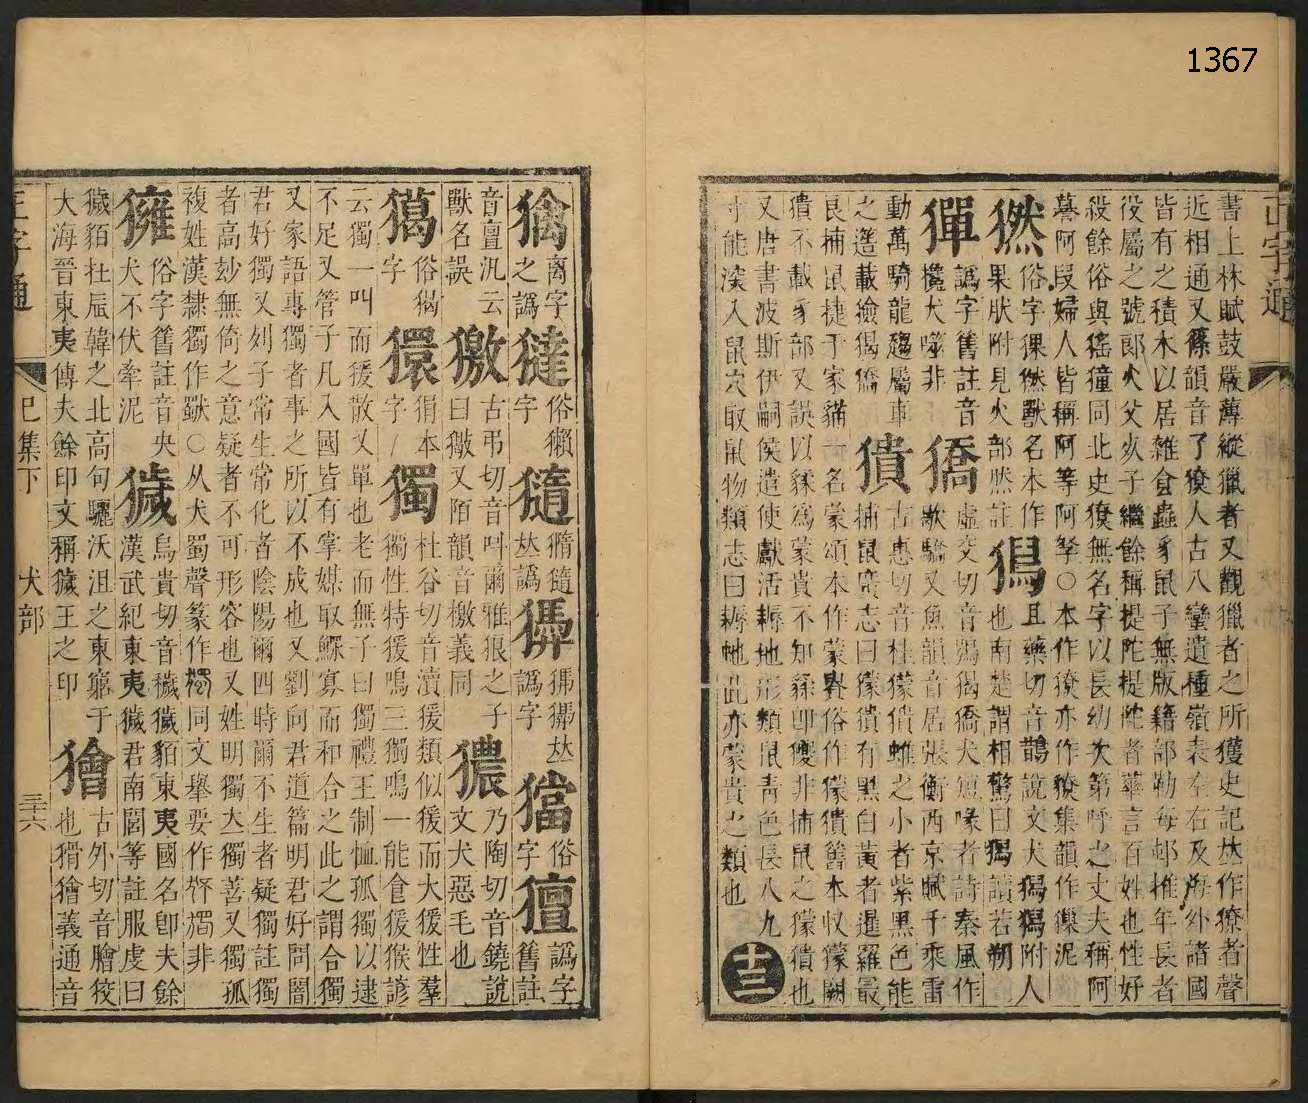 1367
正字通
書上林賦鼓嚴薄縱獵者又觀獵者之所獲史記𠀤作獠者聲
近相通又篠韻音了獠人古八蠻遺種嶺表左右及海外諸國
皆有之積木以居雜食蟲豸鼠子無版籍部勒每邨推年長者
役屬之號郎火父火子繼餘稱提陀提陀者華言百姓也性好
殺餘俗與猺獞同北史獠無名字以長幼次第呼之丈夫稱阿
謩阿段婦人皆稱阿等阿孥○本作獠亦作獠集韻作獠泥
獘
俗字猓然獸名本作
果肰附見火部肰註
獡
且藥切音鵲說文犬獡獡附人
也南楚謂相驚曰獡讀若朔
獋
譌字舊註音
攙犬噬非
獢
虛交切音鴞猲獢犬短喙者詩秦風作
歇驕又魚韻音居張衡西京賦千乘雷
動萬騎龍趨屬車
之簉載獫猲獢
獖
古惠切音桂獴獖蜼之小者紫黑色能
捕鼠廣志曰獴獖有黑白黃者暹羅最
良捕鼠捷于家貓一名蒙頌本作蒙貴俗作獴獖舊本收獴闕
獖不載豸部又誤以貁爲蒙貴不知貁卽㺐非捕鼠之獴獖也
又唐書波斯伊嗣侯遣使獻活褥虵形類鼠青色長八九
寸能深入鼠穴取鼠物類志曰褥虵此亦蒙貴之類也
十三
獝
離字
之譌
㺚
俗獺
字
𤢱
㹵𤢱
𠀤譌
𤢫
猈獬𠀤
譌字
𤢎
俗
字
㺥
譌字
舊註
音亶汎云
獸名誤
獥
古弔切音叫爾雅狼之子
曰獥又陌韻音檄義同
獳
乃陶切音鐃說
文犬惡毛也
獦
俗猲
字
獧
狷本
字
獨
杜谷切音瀆猨類似猨而大猨性羣
獨性特猨鳴三獨鳴一能食猨猴諺
云獨一叫而猨散又單也老而無子曰獨禮王制恤孤獨以逮
不足又管子凡入國皆有掌媒取鰥寡而和合之此之謂合獨
又家語專獨者事之所以不成也又劉向君道篇明君好問闇
君好獨又列子常生常化者陰陽爾四時爾不生者疑獨註獨
者高妙無倚之意疑者不可形容也又姓明獨𠀤獨善又獨孤
複姓漢隸獨作獸○从犬蜀聲篆作獨同文舉要作觧獨非
㺕
俗字舊註音央
犬不伏牽泥
獩
烏貴切音穢獩貊東夷國名卽夫餘
漢武紀東夷獩君南閭等註服虔曰
獩貊杜辰韓之北高句驪沃沮之東窮于
大海晉東夷傳夫餘印文稱獩王之印
獪
古外切音膾狡
也猾獪義通音
正字通
巳集下
犬部
三十六